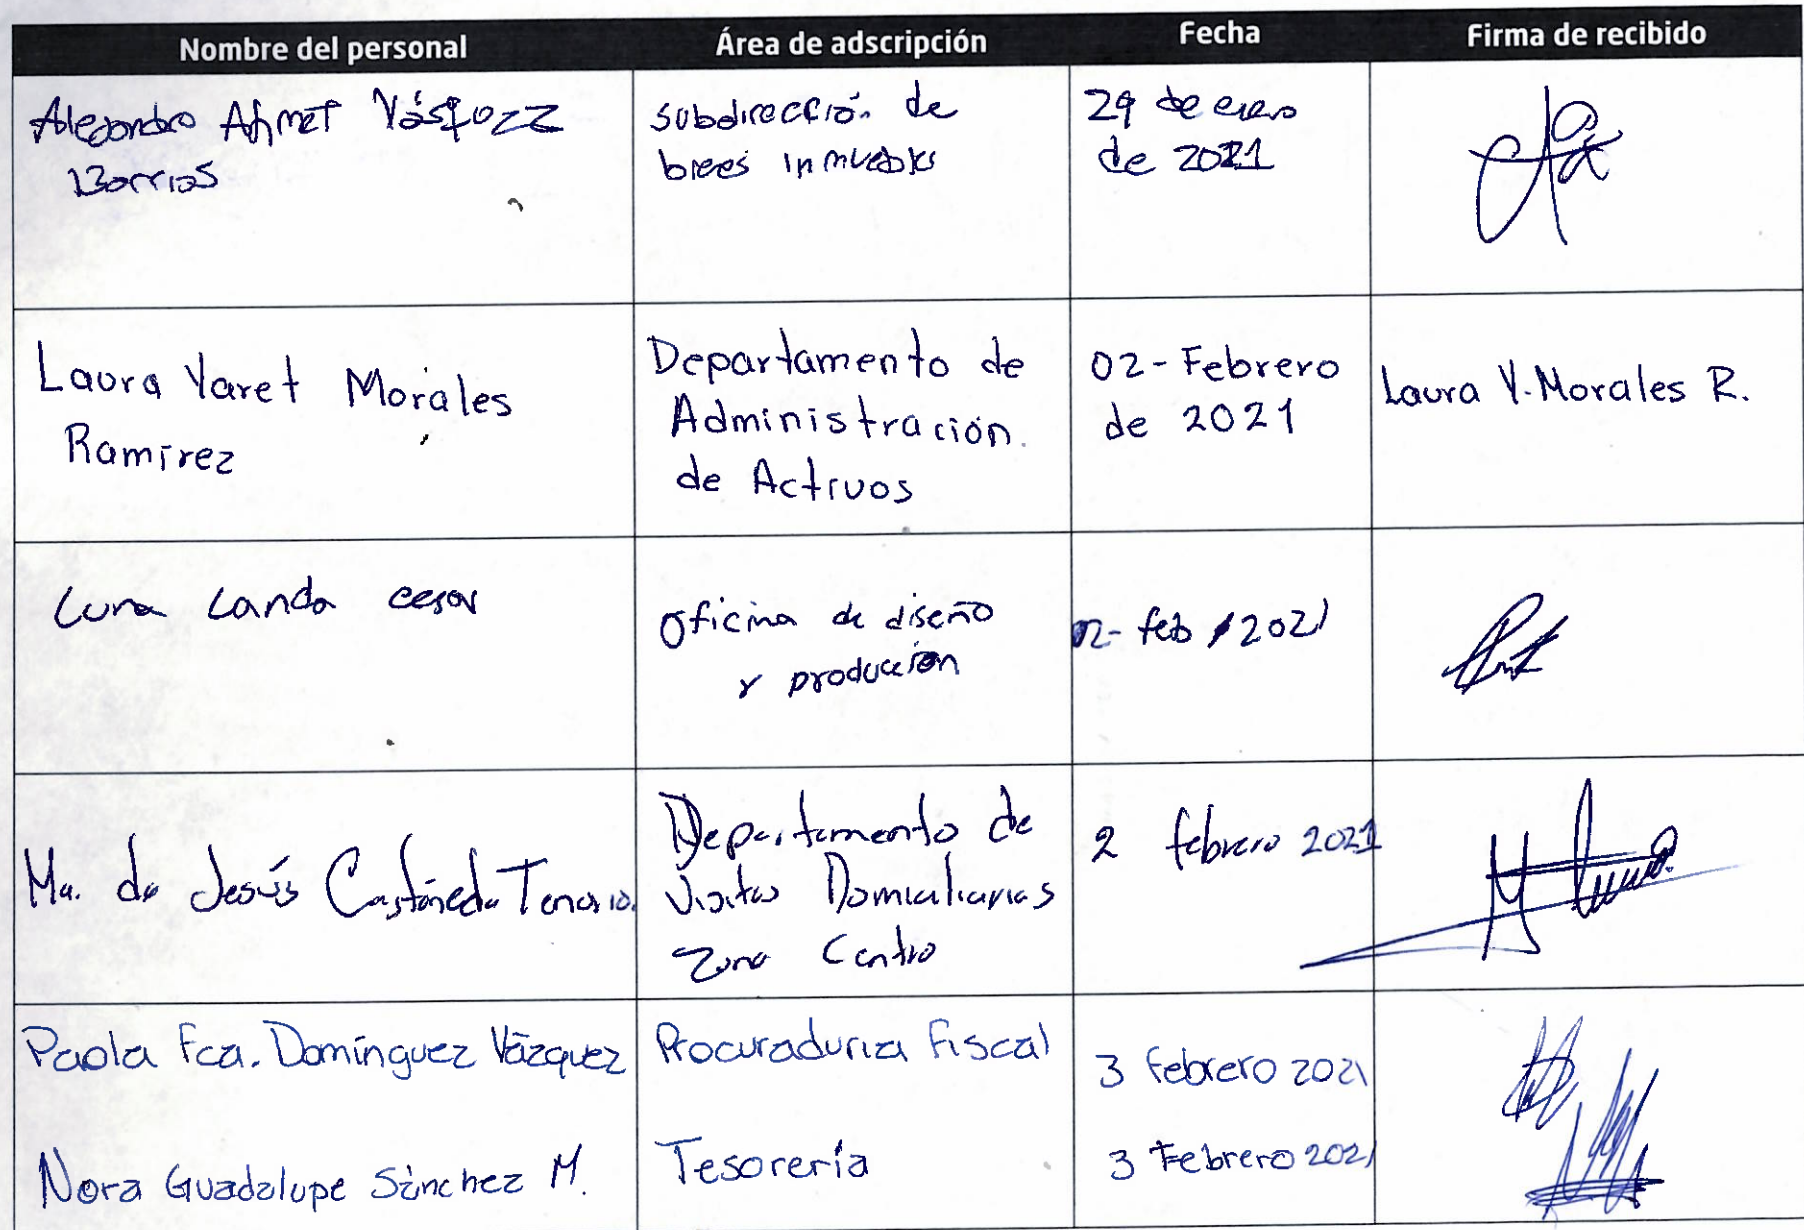 Nombre del personal Área de adscripción Fecha Firma de recibido
Alejandro Ahmet Vásquez
Barrios
subdirección de
biees inmuebles
29 de enero
de 2021
Laura Yaret Morales
Ramírez
Departamento de
Administración
de Activos
02-Febrero
de 2021
Laura Y. Morales R.
Luna Landa cesar
Oficina de diseño
y producción
02- feb / 2021
Ma. de Jesús Castañeda Tenorio.
Departamento de
Visitas Domiciliarias
Zona Centro
2 febrero 2021
Paola Fca. Domínguez Vázquez
Procuraduria Fiscal
3 febrero 2021
Nora Guadalupe Sánchez M.
Tesorería
3 Febrero 2021